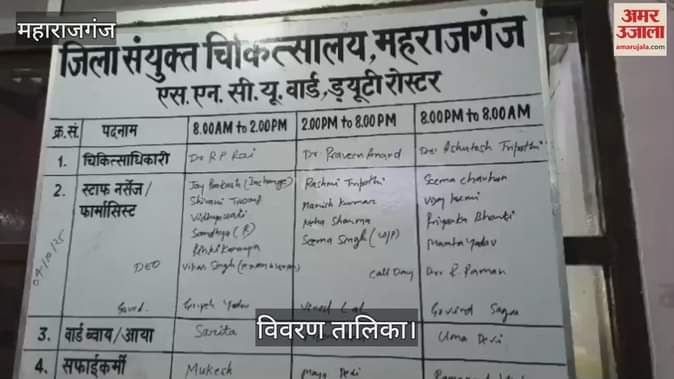 महाराजगंज
अमर उजाला
amarujala.com
जिला संयुक्त चिकित्सालय, महराजगंज
एस.एन.सी.यू. वार्ड, ड्यूटी रोस्टर
क्र.सं. पदनाम 8.00AM to 2.00PM 2.00PM to 8.00PM 8.00PM to 8.00AM
1. चिकित्साधिकारी Dr R P Rai Dr Praveen Anand Dr Ashutosh Tripathi
2. स्टाफ नर्सेज/ फार्मासिस्ट
Rashmi Tripathi Seema Chauhan
Shivani Manish Kumar Vijay Laxmi
Neha Sharma Priyanka Bharti
Sandhya (P) Seema Singh (W/P) Mamta Yadav
DEO Vikas Singh Call Day
04/10/25
Yadav Vinod Lal Govind
3. वार्ड ब्वाय/आया Sarita Uma Devi
4. सफाईकर्मी Mukesh Maya Devi
विवरण तालिका।